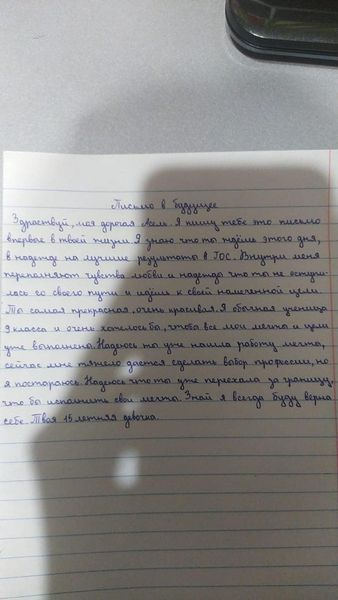 Письмо в будущее
Здраствуй, моя дорогая Асем. Я пишу тебе это письмо
впервые в твоей жизни. Я знаю что ты ждёшь этого дня,
в надежде на лучшие результаты в ГОС. Внутри меня
переполняют чувства любви и надежда что ты не оступи-
лось со своего пути и идёшь к своей намеченной цели.
Ты самая прекрасная, очень красивая. Я обычная ученица
9 класса и очень хотелось бы, чтобы все мои мечты и цели
уже выполнены. Надеюсь ты уже нашла работу мечты,
сейчас мне тяжело дается сделать выбор профессии, но
я постораюсь. Надеюсь что ты уже переехала за границу,
что бы исполнить свои мечты. Знай я всегда буду верна
себе. Твоя 15 летняя девочка.